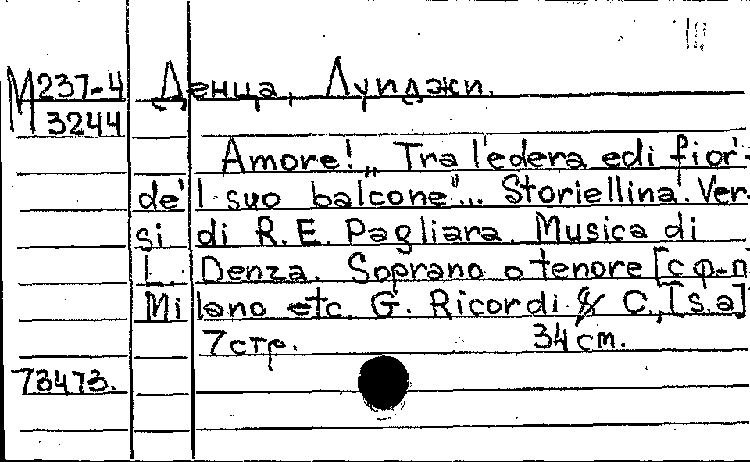 М 237-4 Денца, Луиджи.
3244
Amore! „Tra l'edera e di fior'
de'l suo balcone"... Storiellina. Ver
si di R. E. Pagliara. Musica di
L. Denza. Soprano o tenore [с ф-п
Milano etc. G. Ricordi & C., [s.a]
7 стр. 34 cm.
73473.